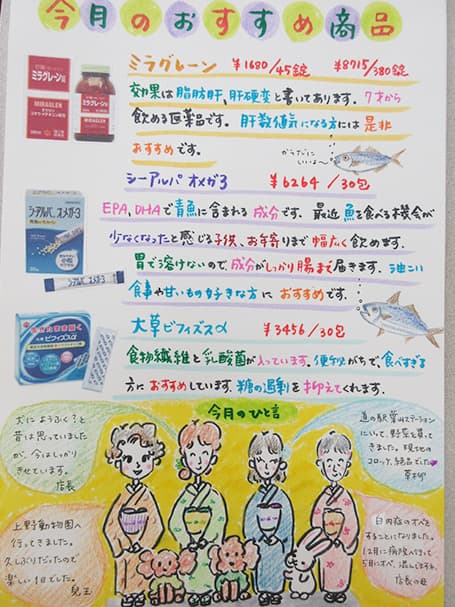 今月のおすすめ商品
ミラグレーン ¥1680/45錠 ¥8715/380錠
効果は脂肪肝、肝硬変と書いてあります。7才から
飲める医薬品です。肝数値気になる方には是非
おすすめです。
からだに
いいよ〜
ミラグレーン錠
MIRAGLEN
シーアルパ オメガ3 ¥6264/30包
EPA、DHAで青魚に含まれる成分です。最近魚を食べる機会が
少なくなったと感じる子供、お年寄りまで幅広く飲めます。
胃で溶けないので、成分がしっかり腸まで届きます。油こい
食事や甘いもの好きな方に おすすめです。
シーアルパ オメガ3
大草ビフィズスα ¥3456/30包
食物繊維と乳酸菌が入っています。便秘がちで、食べすぎる
方におすすめしています。糖の過剰を抑えてくれます。
生きたまま届く
ビフィズスα
今月のひと言
犬にようふく?と
昔は思っていました
が、今はしっかり
きせています。
店長
道の駅
にいって、野菜を買って
きました。現地の
コロッケ、絶品でした。
上野動物園へ
行ってきました。
久しぶりだったので
楽しい1日でした。
児玉
白内症のオペを
することになりました。
12月に病院へ行って
5月にオペ、混んでますね。
店長の母